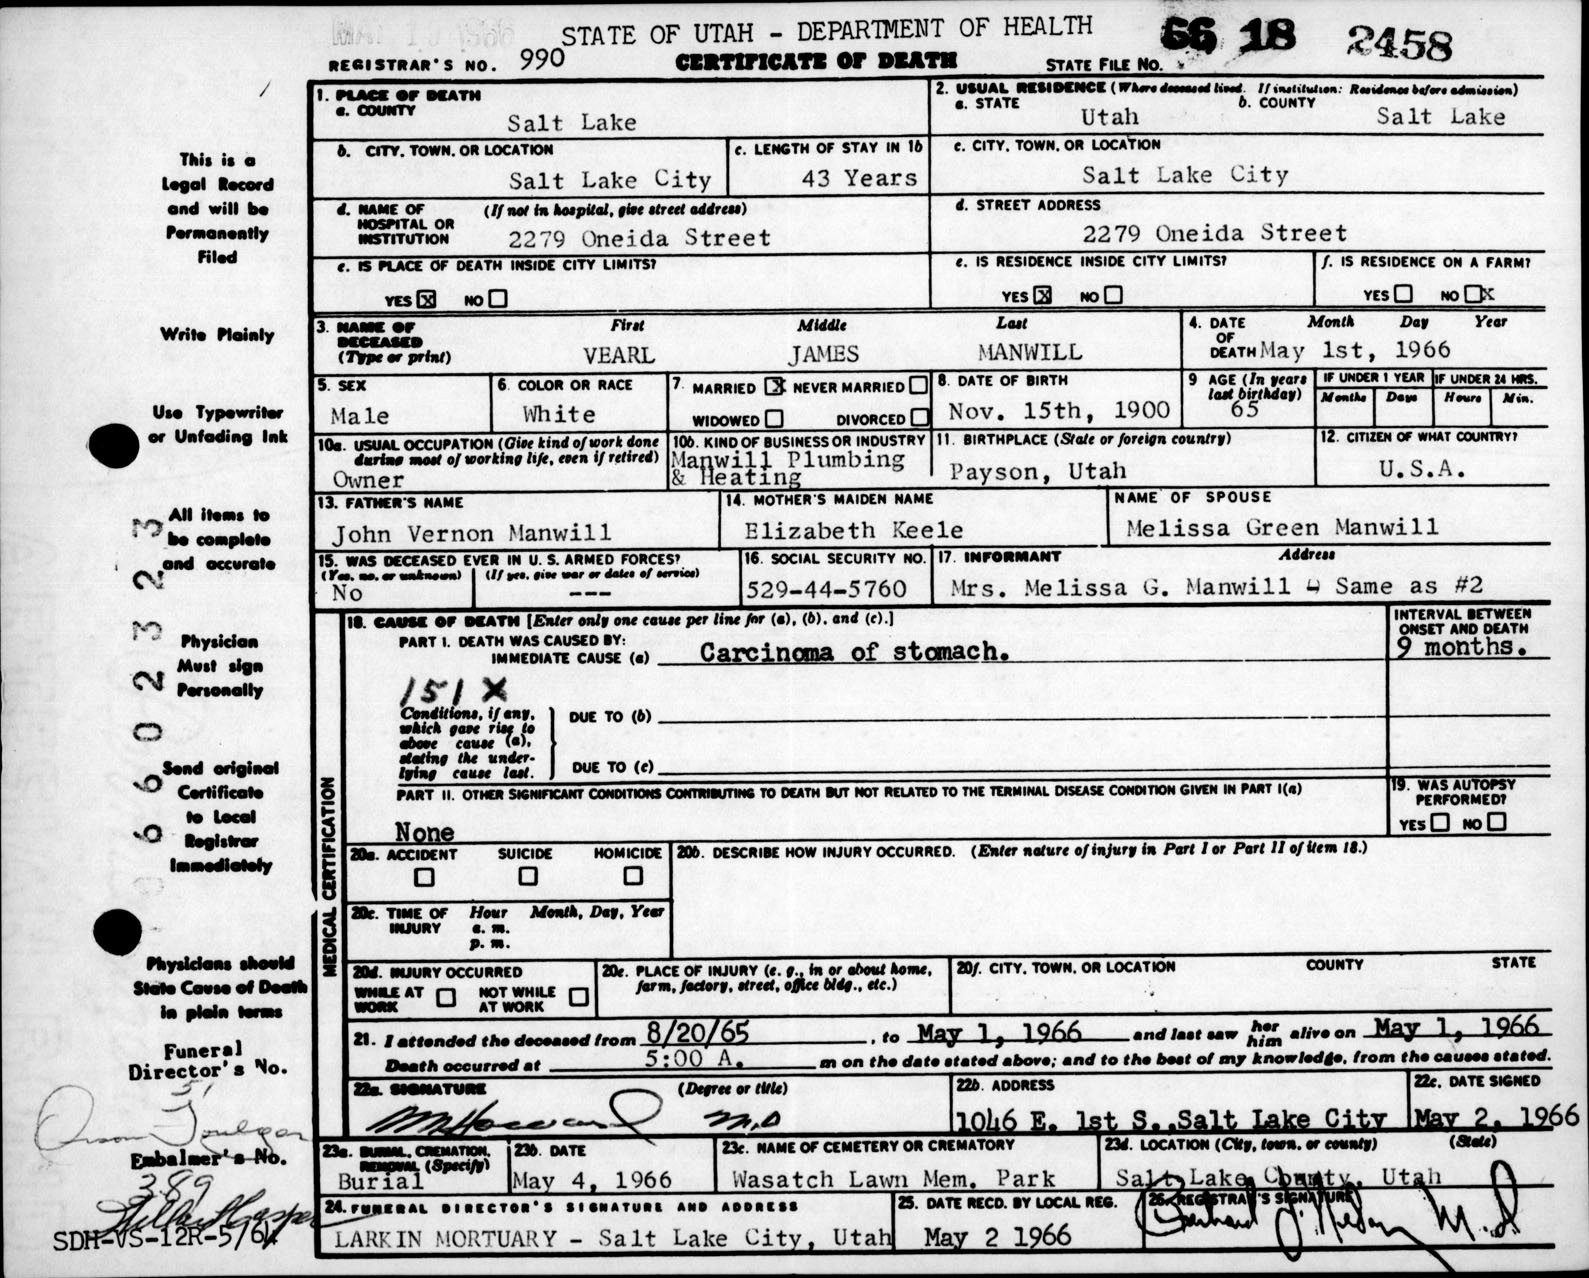 STATE OF UTAH - DEPARTMENT OF HEALTH
66 18 2458
REGISTRAR'S NO. 990
CERTIFICATE OF DEATH
STATE FILE NO.
1. PLACE OF DEATH
a. COUNTY
Salt Lake
2. USUAL RESIDENCE (Where deceased lived. If institution: Residence before admission)
a. STATE
Utah
b. COUNTY
Salt Lake
b. CITY, TOWN, OR LOCATION
Salt Lake City
c. LENGTH OF STAY IN 1b
43 Years
c. CITY, TOWN, OR LOCATION
Salt Lake City
d. NAME OF HOSPITAL OR INSTITUTION
(If not in hospital, give street address)
2279 Oneida Street
d. STREET ADDRESS
2279 Oneida Street
e. IS PLACE OF DEATH INSIDE CITY LIMITS?
YES X NO
e. IS RESIDENCE INSIDE CITY LIMITS?
YES X NO
f. IS RESIDENCE ON A FARM?
YES NO X
3. NAME OF DECEASED (Type or print)
First Middle Last
VEARL JAMES MANWILL
4. DATE OF DEATH
Month Day Year
May 1st, 1966
5. SEX
Male
6. COLOR OR RACE
White
7. MARRIED X NEVER MARRIED
WIDOWED DIVORCED
8. DATE OF BIRTH
Nov. 15th, 1900
9 AGE (In years last birthday)
65
IF UNDER 1 YEAR
Months Days
IF UNDER 24 HRS.
Hours Min.
10a. USUAL OCCUPATION (Give kind of work done during most of working life, even if retired)
Owner
10b. KIND OF BUSINESS OR INDUSTRY
Manwill Plumbing
& Heating
11. BIRTHPLACE (State or foreign country)
Payson, Utah
12. CITIZEN OF WHAT COUNTRY?
U.S.A.
13. FATHER'S NAME
John Vernon Manwill
14. MOTHER'S MAIDEN NAME
Elizabeth Keele
NAME OF SPOUSE
Melissa Green Manwill
15. WAS DECEASED EVER IN U. S. ARMED FORCES?
(Yes, no, or unknown) (If yes, give war or dates of service)
No ---
16. SOCIAL SECURITY NO.
529-44-5760
17. INFORMANT Address
Mrs. Melissa G. Manwill Same as #2
MEDICAL CERTIFICATION
18. CAUSE OF DEATH [Enter only one cause per line for (a), (b), and (c).]
PART I. DEATH WAS CAUSED BY:
IMMEDIATE CAUSE (a) Carcinoma of stomach.
INTERVAL BETWEEN ONSET AND DEATH
9 months.
151 X
Conditions, if any, which gave rise to above cause (a), stating the underlying cause last.
DUE TO (b)
DUE TO (c)
PART II. OTHER SIGNIFICANT CONDITIONS CONTRIBUTING TO DEATH BUT NOT RELATED TO THE TERMINAL DISEASE CONDITION GIVEN IN PART I(a)
None
19. WAS AUTOPSY PERFORMED?
YES NO
20a. ACCIDENT SUICIDE HOMICIDE
20b. DESCRIBE HOW INJURY OCCURRED. (Enter nature of injury in Part I or Part II of item 18.)
20c. TIME OF INJURY
Hour Month, Day, Year
a. m.
p. m.
20d. INJURY OCCURRED
WHILE AT WORK NOT WHILE AT WORK
20e. PLACE OF INJURY (e. g., in or about home, farm, factory, street, office bldg., etc.)
20f. CITY, TOWN, OR LOCATION COUNTY STATE
21. I attended the deceased from 8/20/65, to May 1, 1966 and last saw her him alive on May 1, 1966
Death occurred at 5:00 A. m on the date stated above; and to the best of my knowledge, from the causes stated.
22a. SIGNATURE (Degree or title)
M.D
22b. ADDRESS
1046 E. 1st S., Salt Lake City
22c. DATE SIGNED
May 2, 1966
23a. BURIAL, CREMATION, REMOVAL (Specify)
Burial
23b. DATE
May 4, 1966
23c. NAME OF CEMETERY OR CREMATORY
Wasatch Lawn Mem. Park
23d. LOCATION (City, town, or county) (State)
Salt Lake County, Utah
24. FUNERAL DIRECTOR'S SIGNATURE AND ADDRESS
LARKIN MORTUARY - Salt Lake City, Utah
25. DATE RECD. BY LOCAL REG.
May 2 1966
26. REGISTRAR'S SIGNATURE
M.D
This is a
Legal Record
and will be
Permanently
Filed
Write Plainly
Use Typewriter
or Unfading Ink
All items to
be complete
and accurate
Physician
Must sign
Personally
Send original
Certificate
to Local
Registrar
Immediately
Physicians should
State Cause of Death
in plain terms
Funeral
Director's No.
51
Embalmer's No.
389
SDH-VS-12R-5/64
660232323